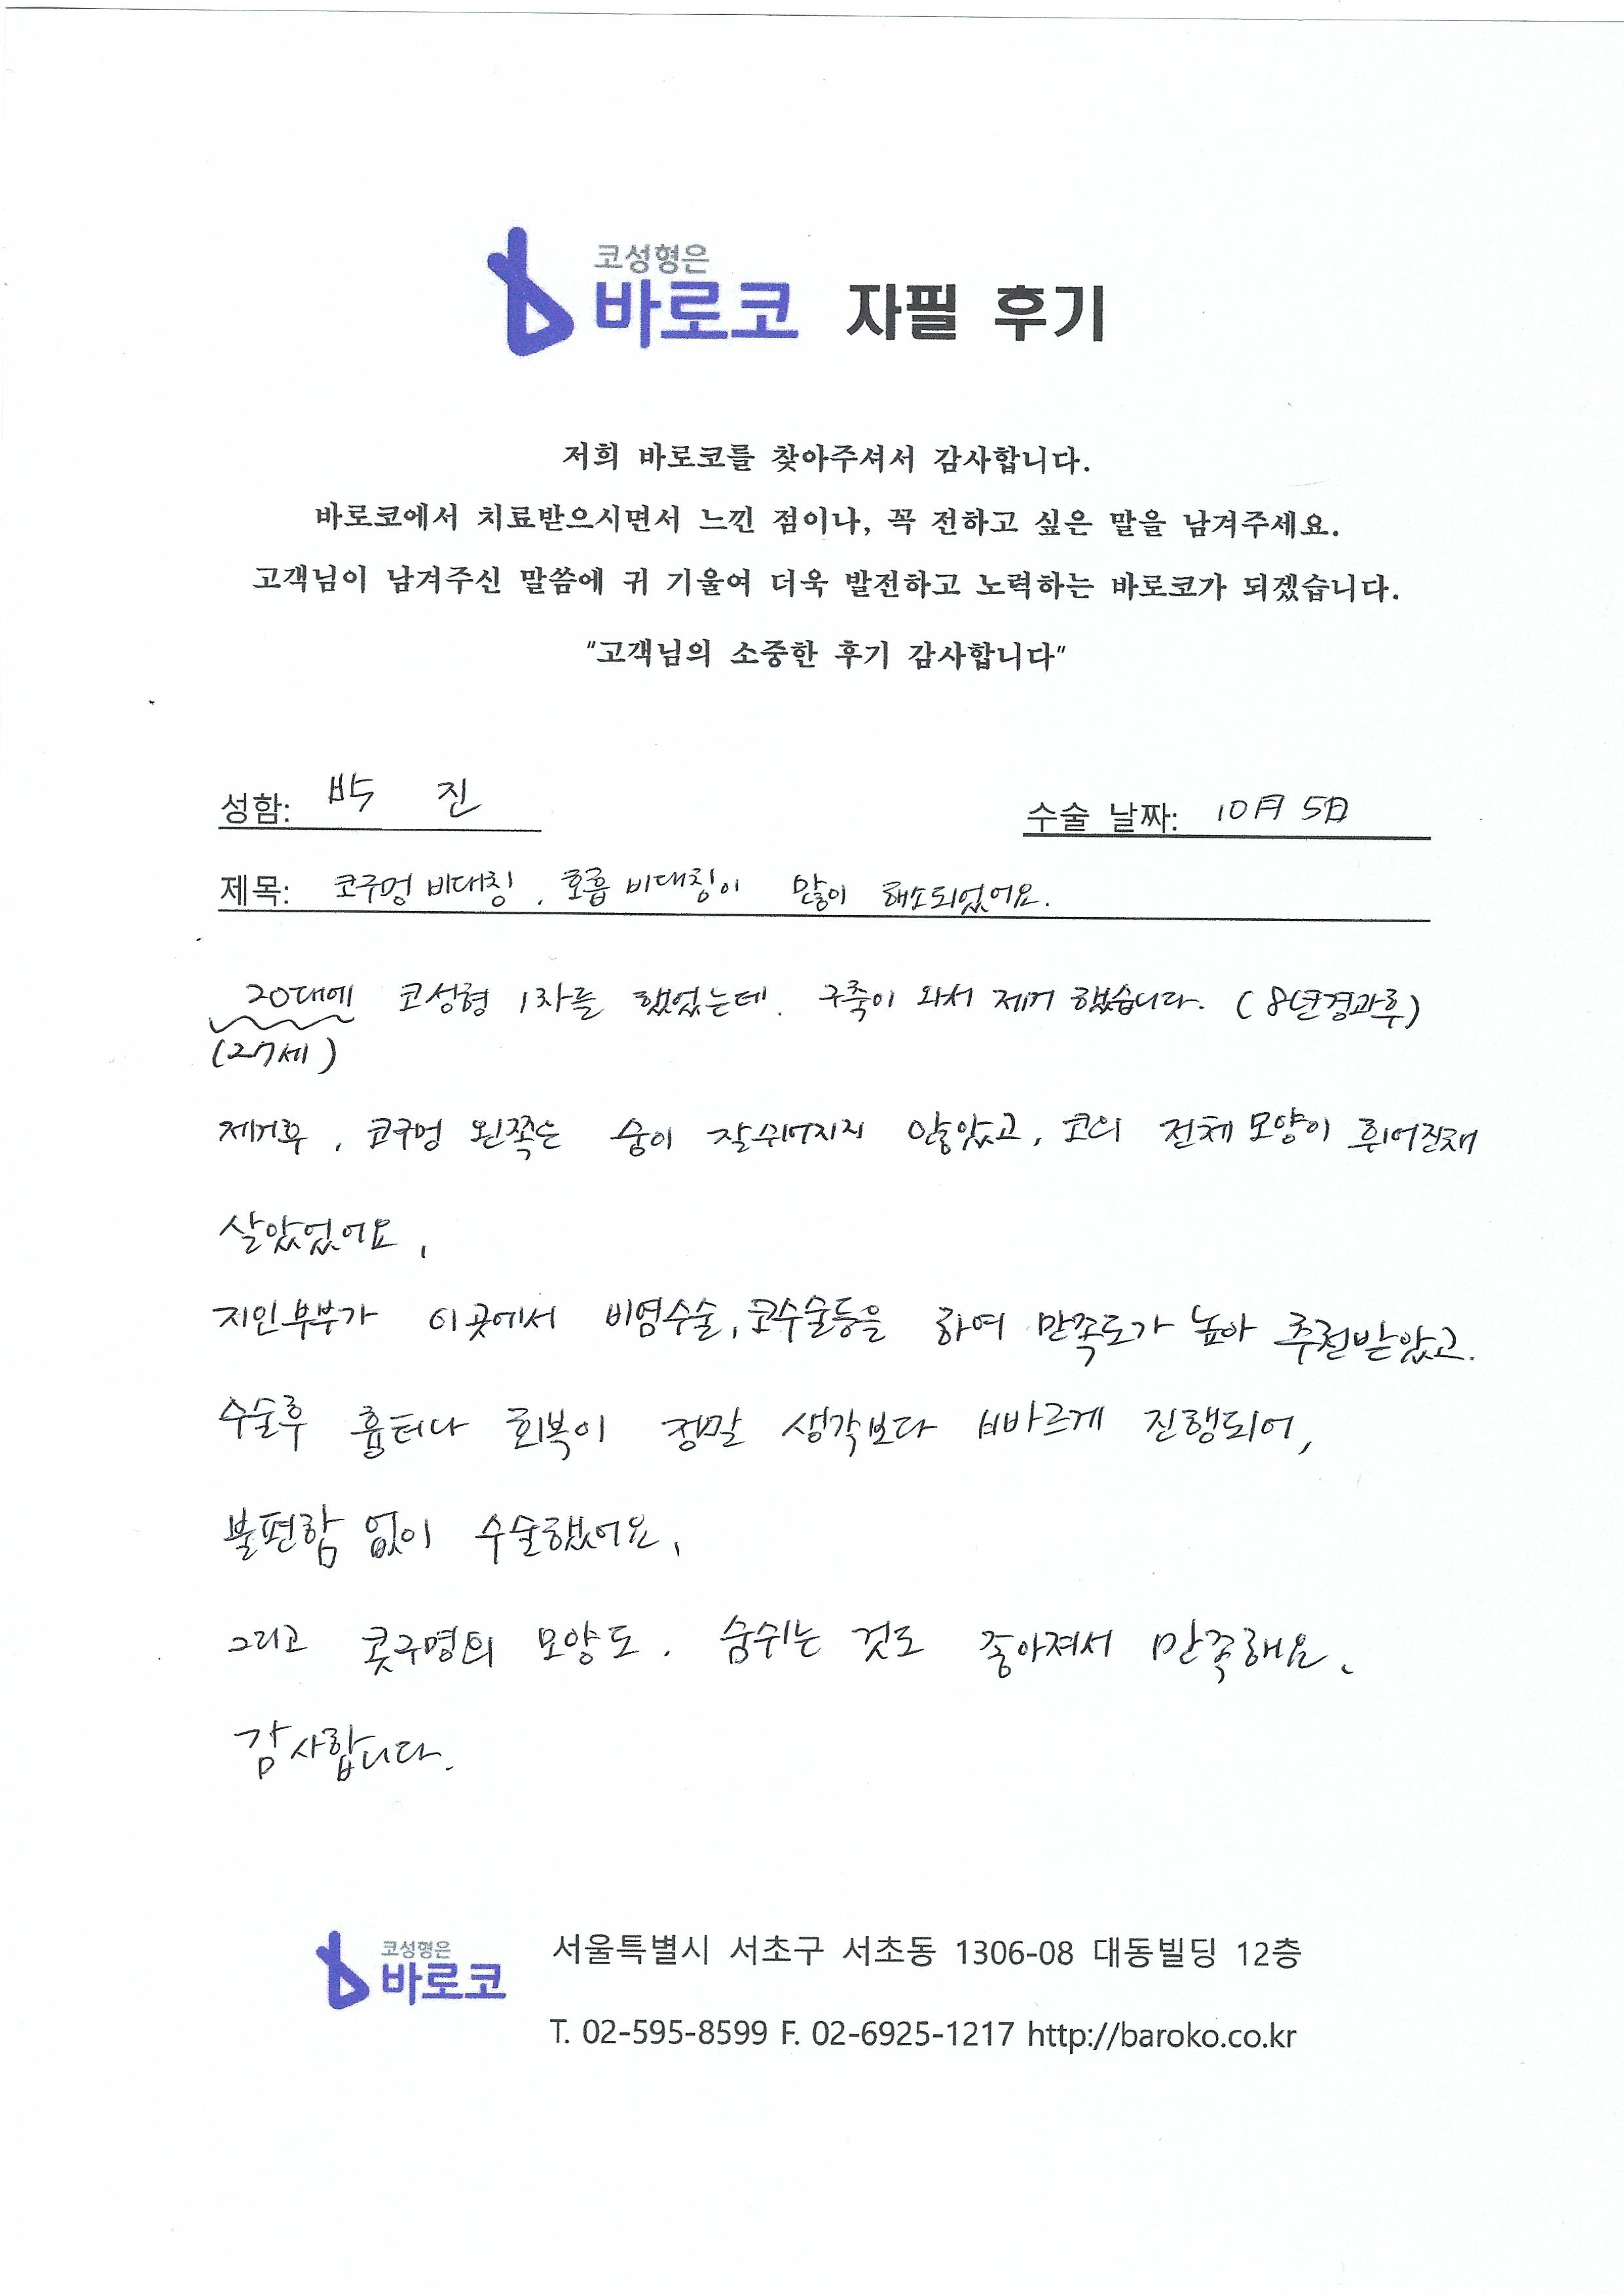 코성형은
바로코 자필 후기
저희 바로코를 찾아주셔서 감사합니다.
바로코에서 치료받으시면서 느낀 점이나, 꼭 전하고 싶은 말을 남겨주세요.
고객님이 남겨주신 말씀에 귀 기울여 더욱 발전하고 노력하는 바로코가 되겠습니다.
"고객님의 소중한 후기 감사합니다"
성함: 박 진 수술 날짜: 10月 5日
제목: 코구멍 비대칭, 호흡 비대칭이 많이 해소되었어요.
20대에 코성형 1차를 했었는데. 구축이 와서 제거 했습니다. (8년경과후)
(27세)
제거후, 코구멍 왼쪽은 숨이 잘쉬어지지 않았고, 코의 전체 모양이 휘어진채
살았었어요.
지인부부가 이곳에서 비염수술, 코수술등을 하여 만족도가 높아 추천받았고.
수술후 흉터나 회복이 정말 생각보다 빠르게 진행되어,
불편함 없이 수술했어요.
그리고 콧구멍의 모양도. 숨쉬는 것도 좋아져서 만족해요.
감사합니다.
코성형은
바로코
서울특별시 서초구 서초동 1306-08 대동빌딩 12층
T. 02-595-8599 F. 02-6925-1217 http://baroko.co.kr